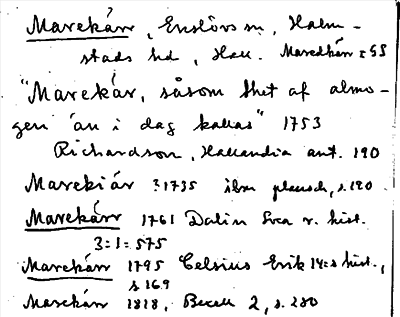 Marekärr, Enslövs sn, Halm-
stads hd, Hall. Maredkärr = GS
"Marekär, såsom thet af almo-
gen än i dag kallas" 1753
Richardson, Hallandia ant. 190
Marekiär ?1735 ibm plansch, s. 190
Marekärr 1761 Dalin Svea r. hist.
3:1 = 575
Marekärr 1795 Celsius Erik 14:s hist.,
s 169
Marekärr 1818, Bexell 2, s. 280